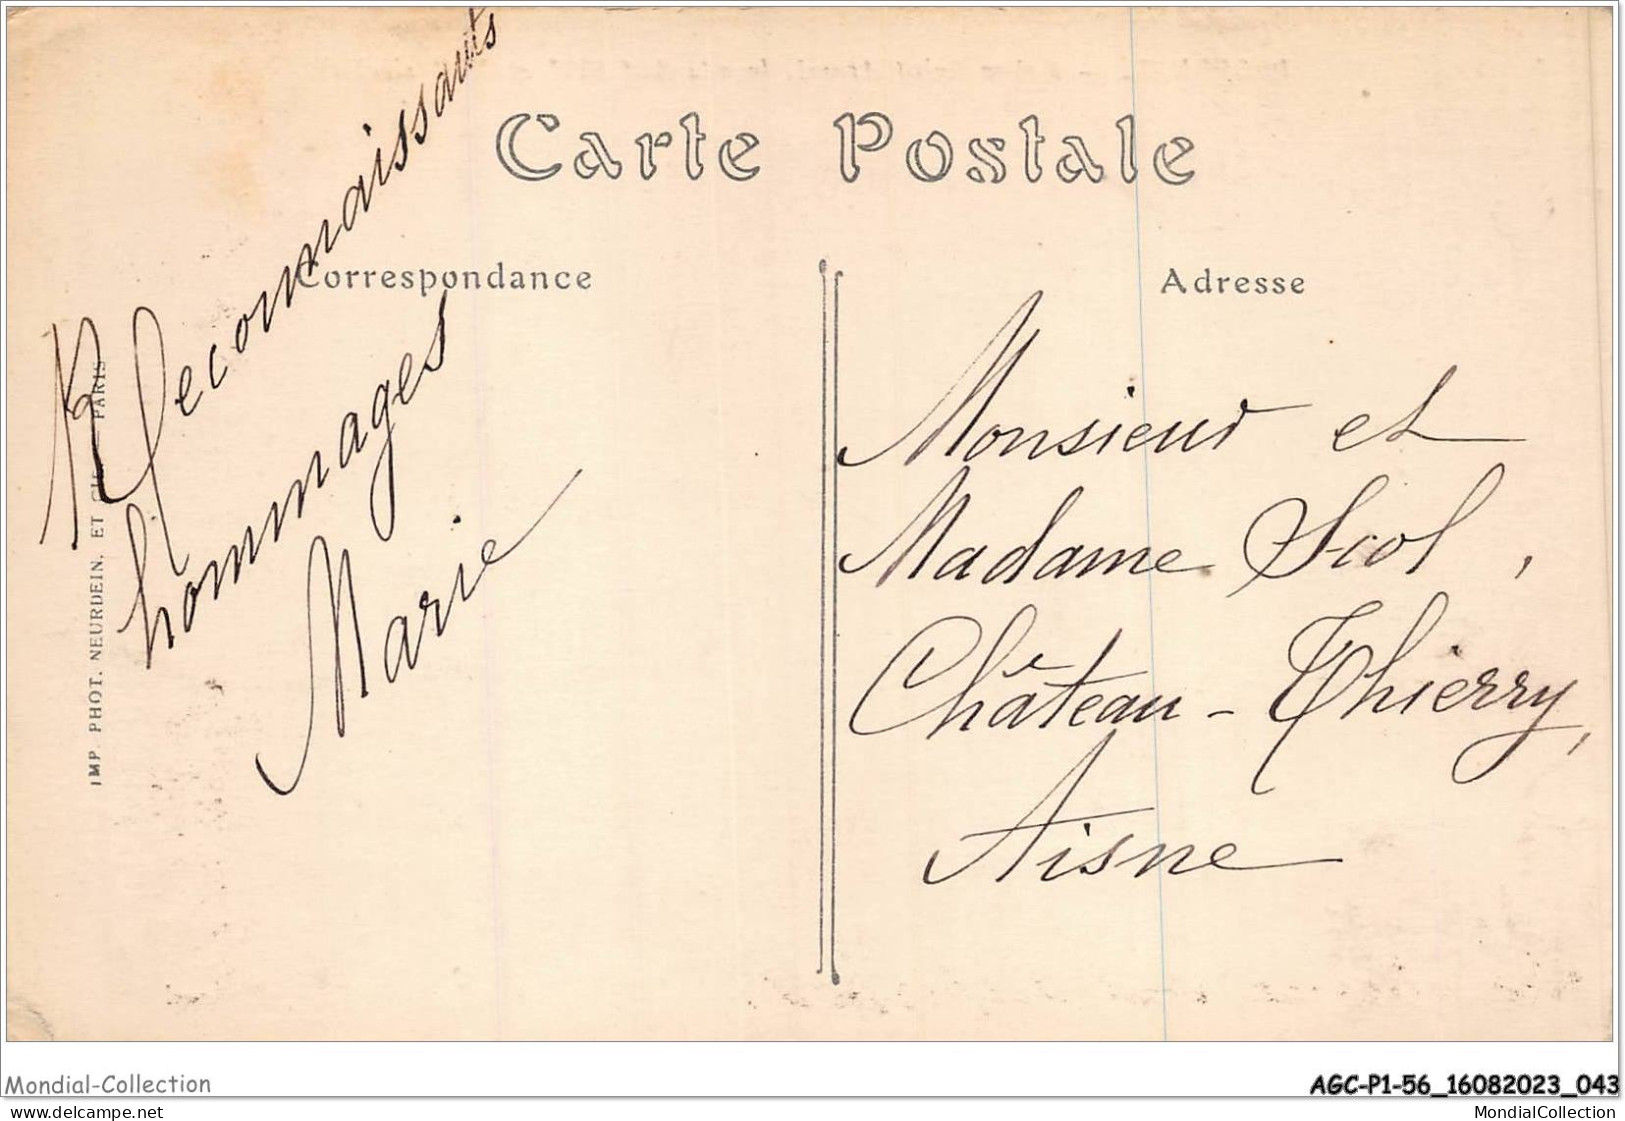 Carte Postale
Correspondance
Reconnaissants
hommages
Marie
IMP. PHOT. NEURDEIN, ET CIE — PARIS
Adresse
Monsieur et
Madame Scol,
Château-Thierry,
Aisne
Mondial-Collection
AGC-P1-56_16082023_043
www.delcampe.net
MondialCollection